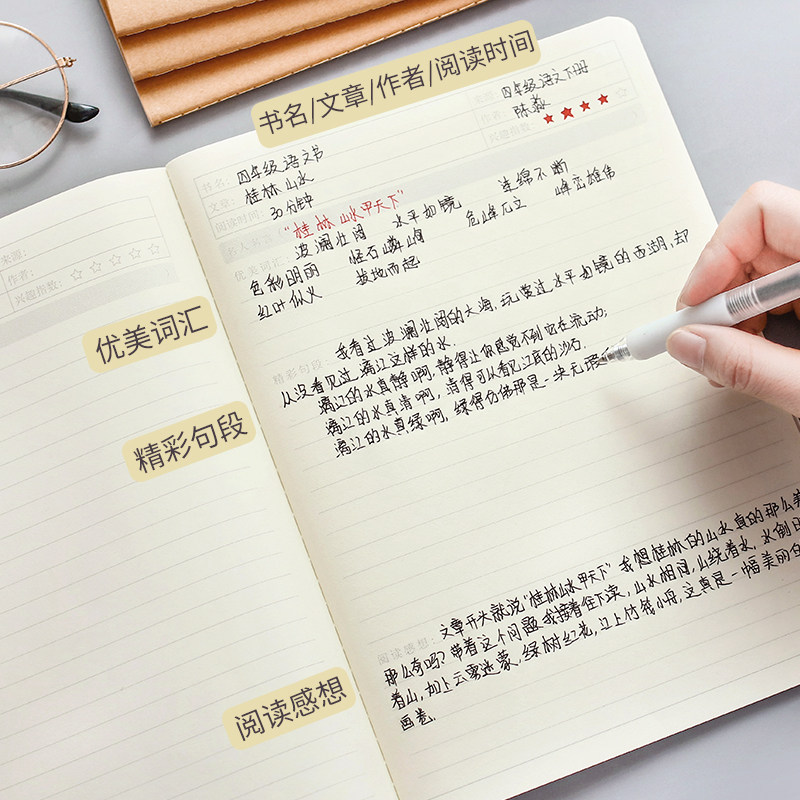 书名/文章/作者/阅读时间
四年级语文下册
作者:
陈淼
兴趣指数:
书名: 四年级语文书
文章: 桂林山水
阅读时间: 30分钟
"桂林山水甲天下"
波澜壮阔 水平如镜 连绵不断
优美词汇: 怪石嶙峋 危峰兀立 峰峦雄伟
色彩明丽 拔地而起
红叶似火
来源:
作者:
兴趣指数: ☆☆☆☆☆
优美词汇
精彩句段
我看过波澜壮阔的大海,玩赏过水平如镜的西湖,却
从没看见过漓江这样的水.
漓江的水真静啊,静得让你感觉不到它在流动;
漓江的水真清啊,清得可以看见江底的沙石.
漓江的水真绿啊,绿得仿佛那是一块无瑕
精彩句段
阅读感想:
文章开头就说"桂林山水甲天下"我想桂林的山水真的那么美
那么奇吗?带着这个问题我接着往下读,山水相间,山绕着水,水倒
着山,加上云雾迷蒙,绿树红花,江上竹筏小舟,这真是一幅美丽的
画卷.
阅读感想